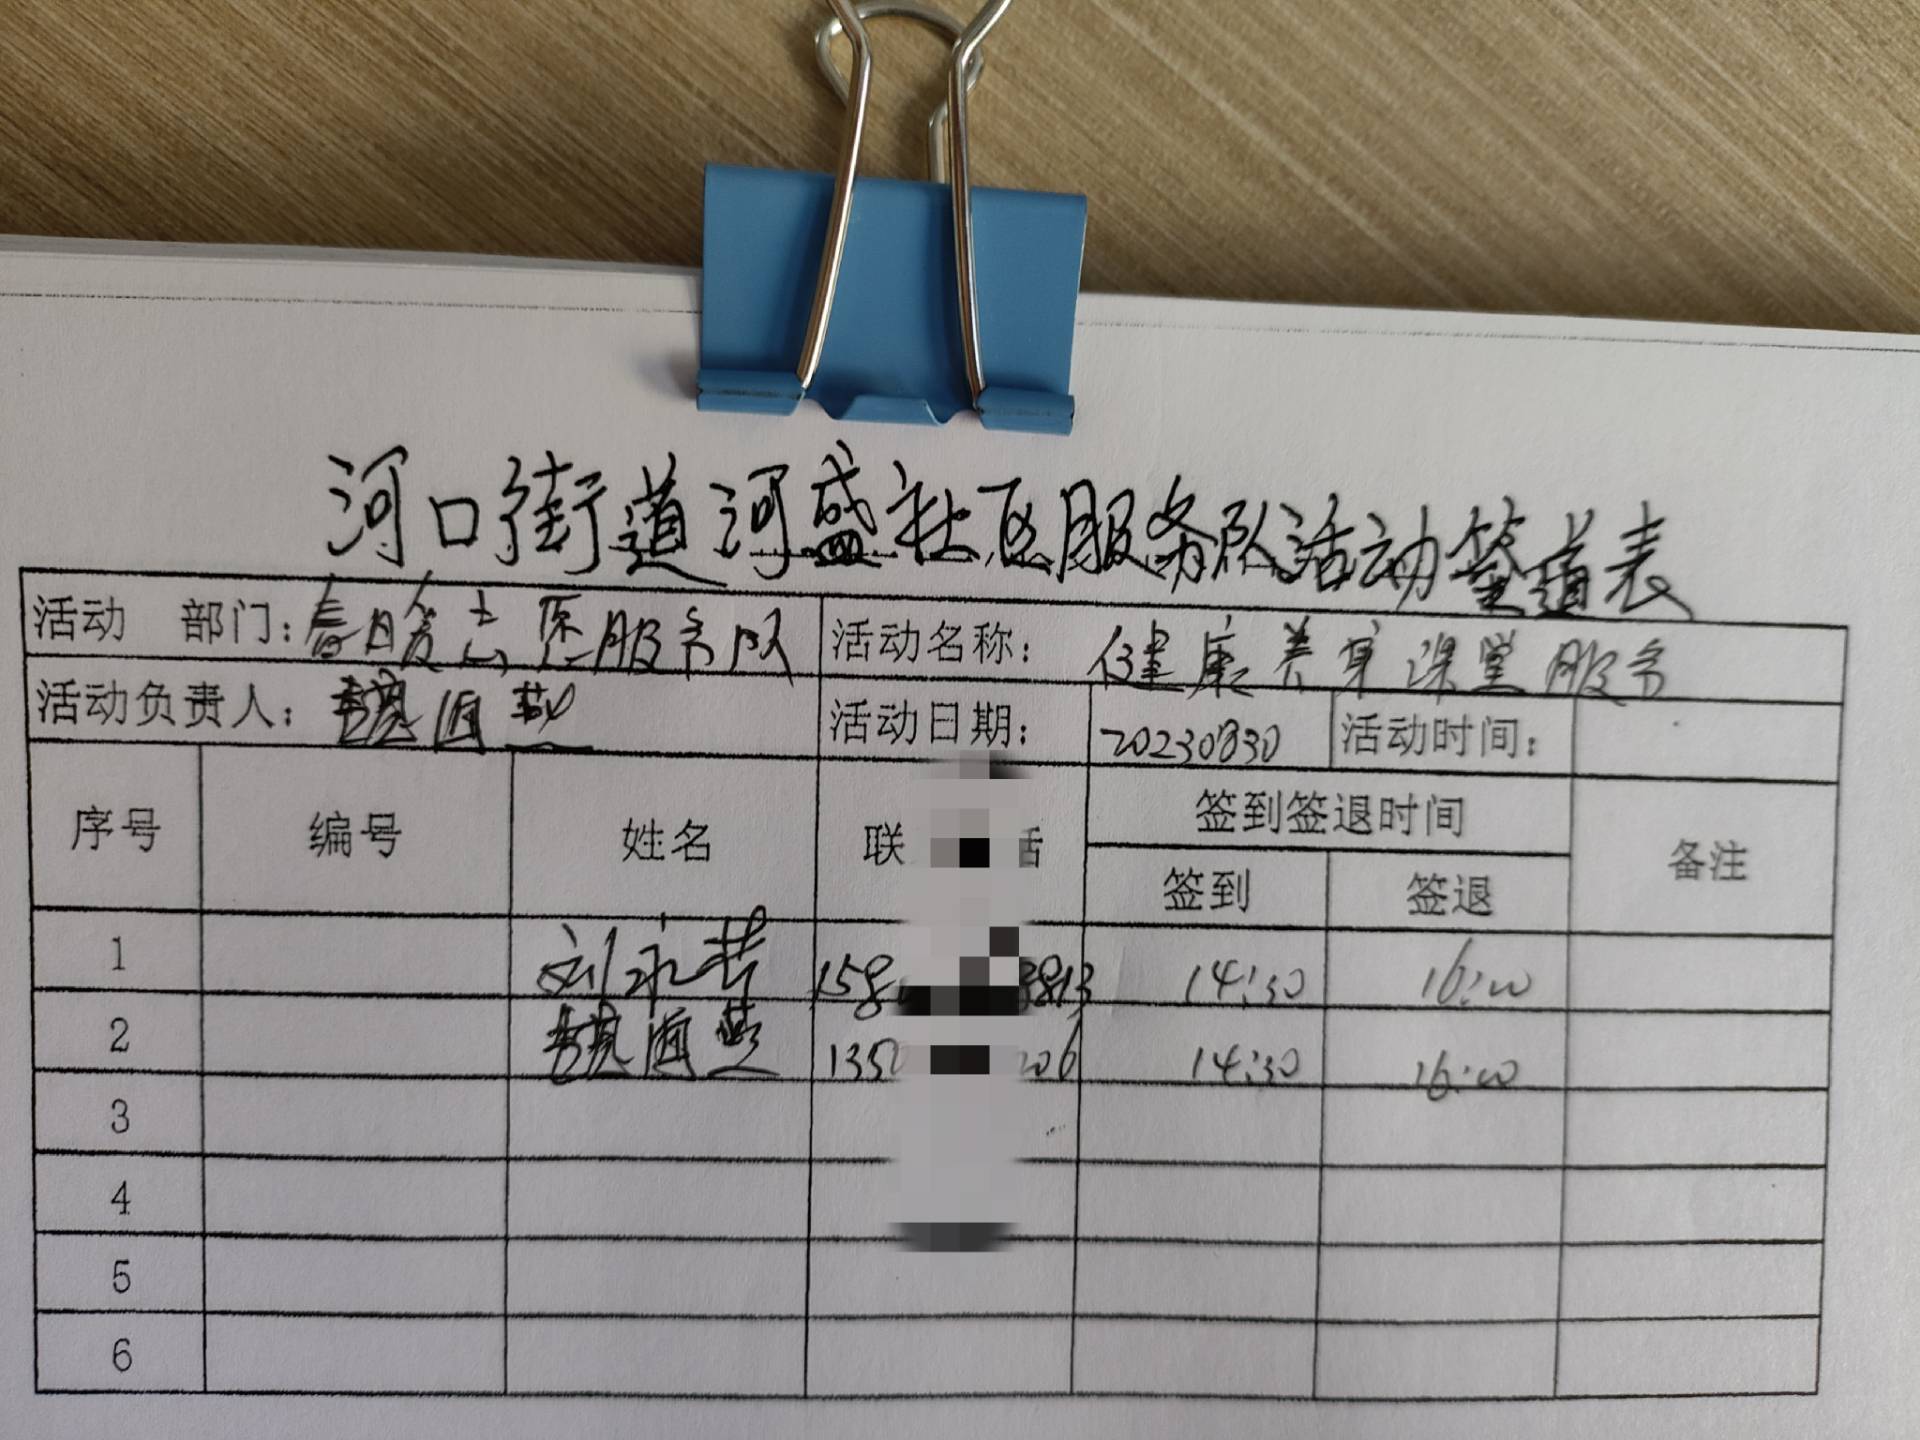 河口街道河盛社区服务队活动签道表
活动 部门：春日暖志愿服务队 活动名称：健康养身课堂服务
活动负责人： 海燕 活动日期：20230830 活动时间：
序号 编号 姓名 联 话 签到签退时间 备注
签到 签退
1 刘永芳 158 3813 14:30 16:00
2 海燕 135 206 14:30 16:00
3
4
5
6